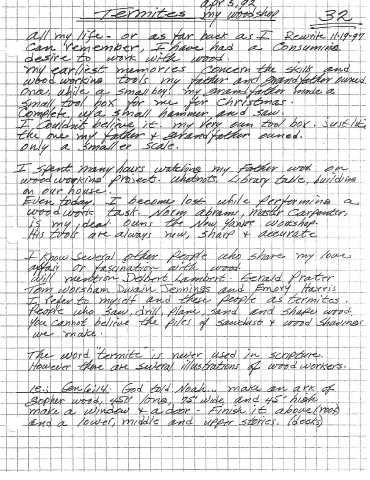 Apr 5, 92
Termites my woodshop 32
All my life - or as far back as I Rewrite 11-19-97
can remember, I have had a consuming
desire to work with wood.
My earliest memories concern the skills and
wood working tools my father and grandfather owned.
Once, while a small boy, my grandfather made a
small tool box for me for Christmas.
Complete w/a small hammer and saw.
I couldn't believe it my very own tool box. Just like
the one my father & grandfather owned.
only a smaller scale.
I spent many hours watching my Father work on
wood working project. whatnots, Library table, building
on our house.
Even today I become lost while performing a
wood work task. Norm Abrams, Master Carpenter,
is my ideal owns the New Yankee workshop.
His tools are always new, sharp & accurate
I know several other people who share my love
affair or fascination with wood
Will mention Delbert Lambert - Gerald Prater
Tom Worsham Dwain Jennings and Emory Harris
I refer to myself and these people as termites.
People who saw, drill, plane, sand and shape wood.
You cannot believe the piles of sawdust & wood shavings
we make.
The word "termite" is never used in scripture.
However there are several illustrations of wood workers.
ie: Gen 6:14. God told Noah... make an ark of
gopher wood, 450' long, 75' wide, and 45' high
make a window & a door - Finish it above (roof)
and a lower, middle and upper stories. (decks)